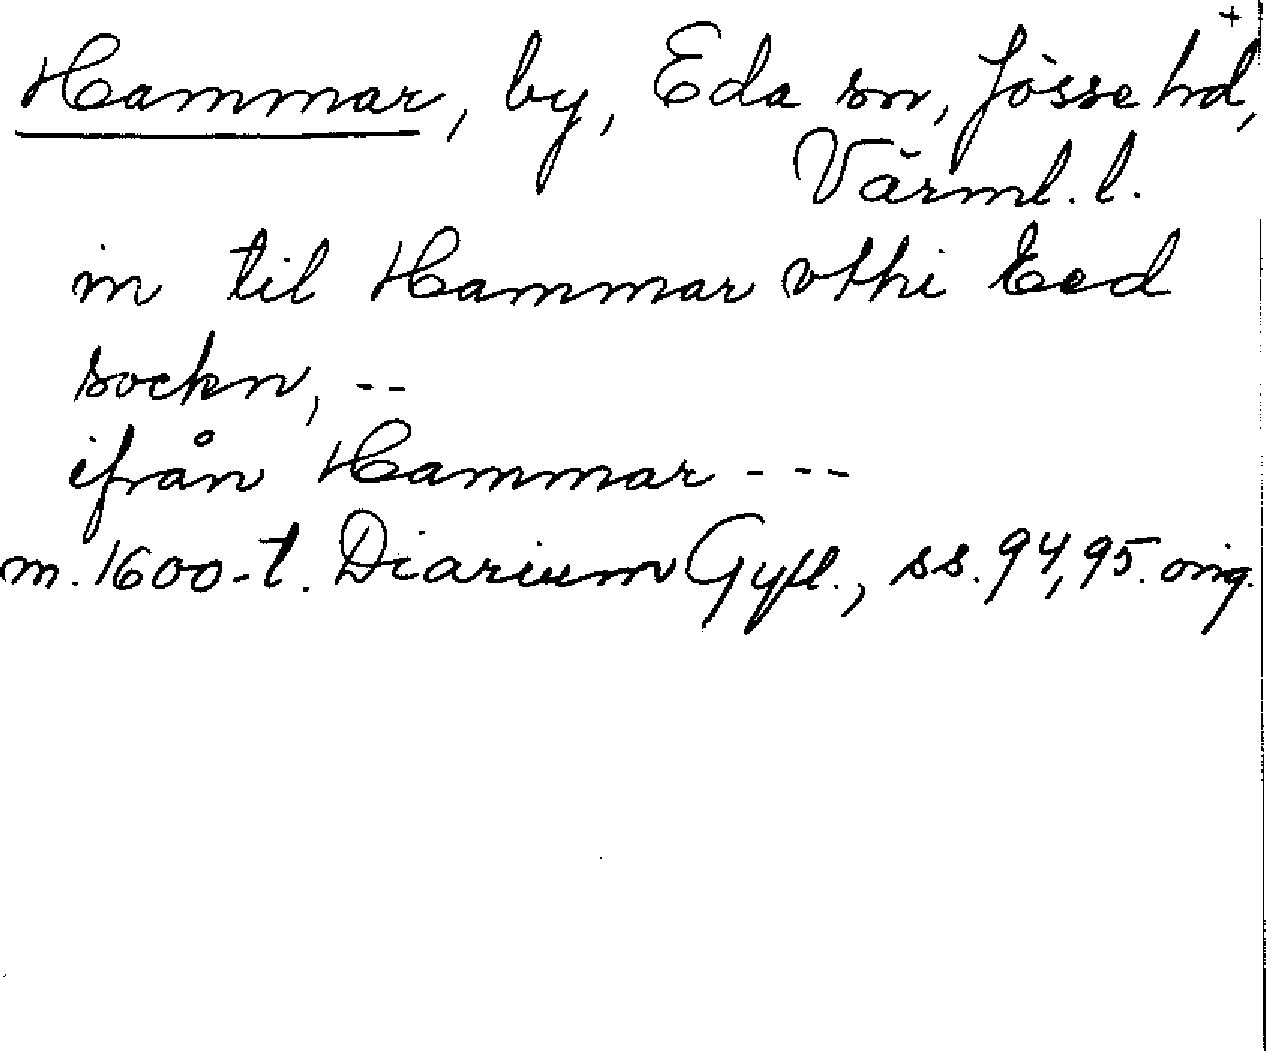 +
Hammar, by, Eda sn, Jösse hd,
Värml. l.
in til Hammar vthi Eed
sockn, --
ifrån Hammar ---
m. 1600-t. Diarium Gyll., ss. 94, 95. orig.